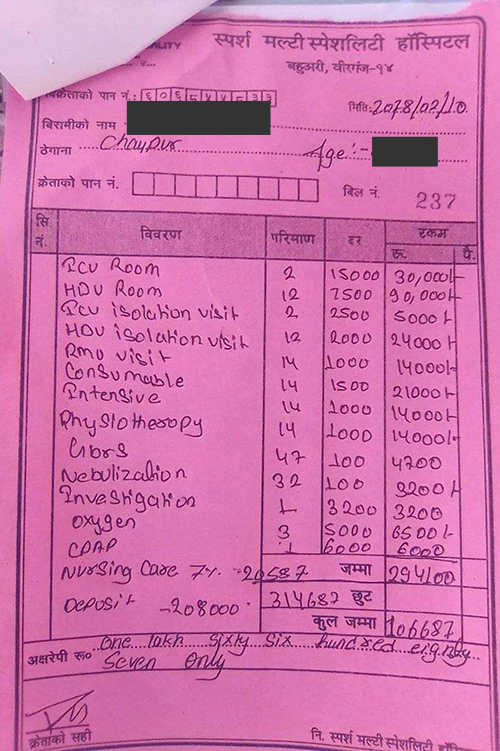 ALITY स्पर्श मल्टी स्पेशलिटि हॉस्पिटल
बहुअरी, वीरगंज-१४
विक्रेताको पान नं.: ६०६५५४५३३
मिति: 2078/02/10
बिरामीको नाम
ठेगाना Chaupur Age:-
क्रेताको पान नं. बिल नं. 237
सि. नं. विवरण परिमाण दर रकम
रू. पै.
ICU Room 2 15000 30,000/-
HDU Room 12 7500 90,000/-
ICU isolation visit 2 2500 5000/-
HDU isolation visit 12 2000 24000/-
RMO visit 14 1000 14000/-
Consumable 14 1500 21000/-
Intensive 14 1000 14000/-
Physiotherapy 14 1000 14000/-
47 100 4700
Nebulization 32 100 3200/-
Investigation 1 3200 3200
Oxygen 3 5000 6500/-
CPAP 1 6000 6000
Nursing Care 7% - 20587 जम्मा 294100
Deposit - 208000 314687 छुट
कुल जम्मा 106687
अक्षरेपी रू० One lakh Sixty Six hundred eighty
Seven Only
क्रेताको सही नि. स्पर्श मल्टी स्पेशलिटी हॉस्पिटल